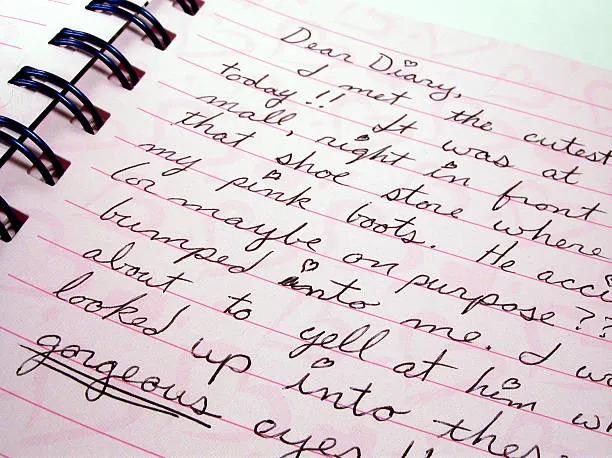 Dear Diary,
I met the cutest
today!! It was at
small, right in front
that shoe store where
my pink boots. He acci
(or maybe on purpose??
bumped into me. I wa
about to yell at him wh
looked up into thes
gorgeous eyes!!